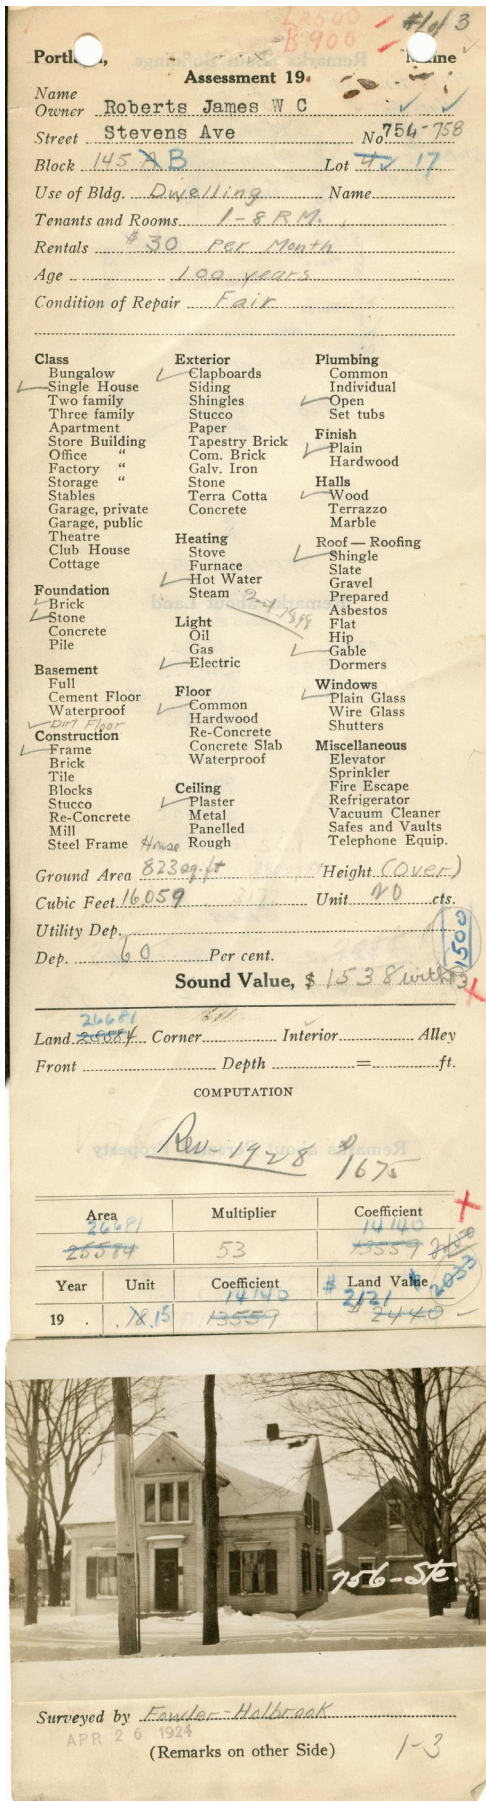 L2500
B 900
#1 of 3
Portland, Maine
Assessment 19
Name
Owner Roberts James W C
Street Stevens Ave No 754-758
Block 145 A B Lot 4 17
Use of Bldg. Dwelling Name
Tenants and Rooms 1-8 RM.
Rentals $30 Per Month
Age 100 years
Condition of Repair Fair
Class
Bungalow
Single House
Two family
Three family
Apartment
Store Building
Office "
Factory "
Storage "
Stables
Garage, private
Garage, public
Theatre
Club House
Cottage
Foundation
Brick
Stone
Concrete
Pile
Basement
Full
Cement Floor
Waterproof
Dirt Floor
Construction
Frame
Brick
Tile
Blocks
Stucco
Re-Concrete
Mill
Steel Frame
Exterior
Clapboards
Siding
Shingles
Stucco
Paper
Tapestry Brick
Com. Brick
Galv. Iron
Stone
Terra Cotta
Concrete
Heating
Stove
Furnace
Hot Water
Steam
Light
Oil
Gas
Electric
Floor
Common
Hardwood
Re-Concrete
Concrete Slab
Waterproof
Ceiling
Plaster
Metal
Panelled
Rough
Plumbing
Common
Individual
Open
Set tubs
Finish
Plain
Hardwood
Halls
Wood
Terrazzo
Marble
Roof — Roofing
Shingle
Slate
Gravel
Prepared
Asbestos
Flat
Hip
Gable
Dormers
Windows
Plain Glass
Wire Glass
Shutters
Miscellaneous
Elevator
Sprinkler
Fire Escape
Refrigerator
Vacuum Cleaner
Safes and Vaults
Telephone Equip.
House
Ground Area 823 sq. ft Height (Over)
Cubic Feet 16,059 Unit 20 cts.
Utility Dep.
1500
Dep. 60 Per cent.
Sound Value, $ 1538 with
26681
Land 25584 Corner Interior Alley
Front Depth = ft.
COMPUTATION
Rev 1928 1675
Area Multiplier Coefficient
26681 14140
25584 53 13559 2100
2033
Year Unit Coefficient Land Value
14140 $ 2121
19 . .18 .15 13559 $ 2440
756-Ste.
Surveyed by Fowler-Holbrook
APR 26 1924
(Remarks on other Side) 1-3